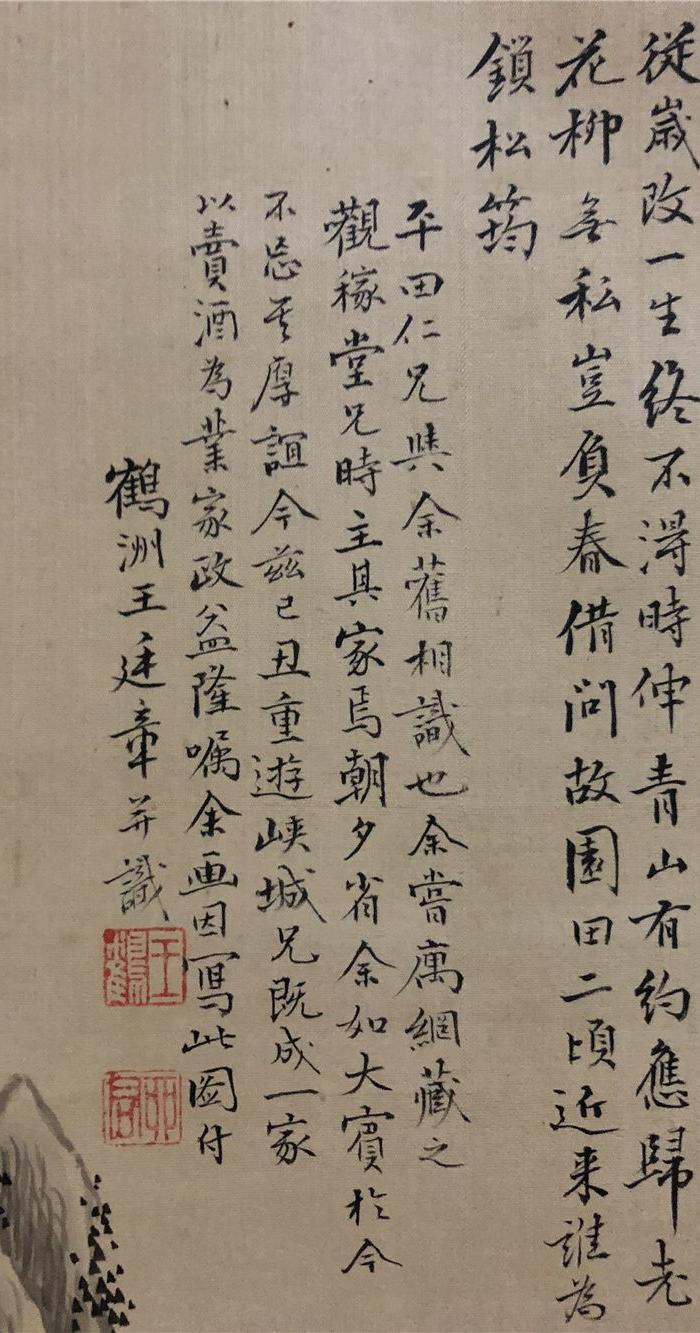 從歲改一生終不得時伸青山有約應歸老
花柳無私豈負春借問故園田二頃近来誰為
鎖松筠
平田仁兄與余舊相識也余嘗寓網藏之
觀稼堂兄時主其家焉朝夕省余如大賓於今
不忘其厚誼今茲己丑重遊峡城兄既成一家
以賣酒為業家政益隆嘱余画因寫此圖付
鶴洲王廷章并識